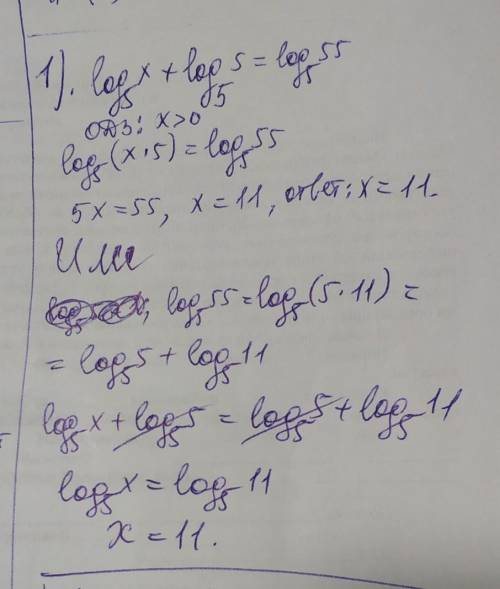 1). log₅x + log₅5 = log₅55
ОДЗ: x>0
log₅(x·5) = log₅55
5x=55, x=11, ответ: x=11.
Или
log₅55 = log₅(5·11) =
= log₅5 + log₅11
log₅x + log₅5 = log₅5 + log₅11
log₅x = log₅11
x = 11.